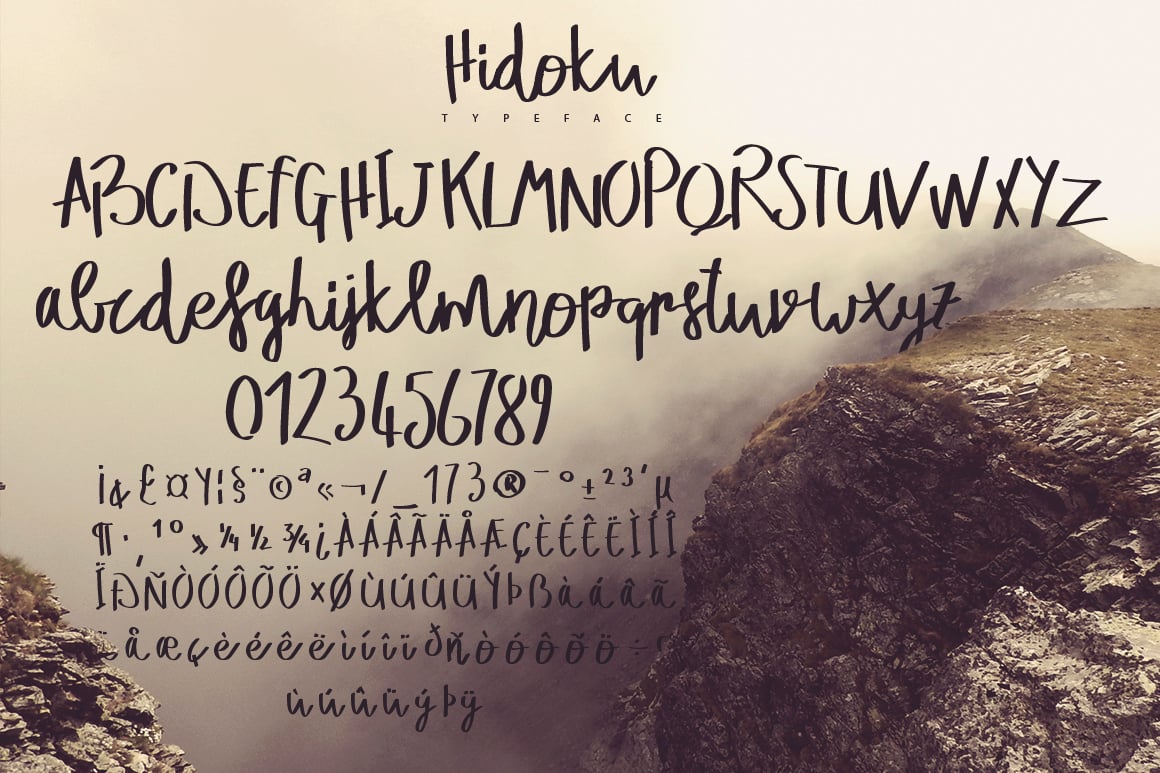 Hidoku
TYPEFACE
ABCDEFGHIJKLMNOPQRSTUVWXYZ
abcdefghijklmnopqrstuvwxyz
0123456789
¡¢£¤¥¦§¨©ª«¬/_173®¯°±²³´µ
¶·¸¹º»¼½¾¿ÀÁÂÃÄÅÆÇÈÉÊËÌÍÎ
ÏÐÑÒÓÔÕÖ×ØÙÚÛÜÝÞßàáâã
äåæçèéêëìíîïðñòóôõö÷
ùúûüýþÿ